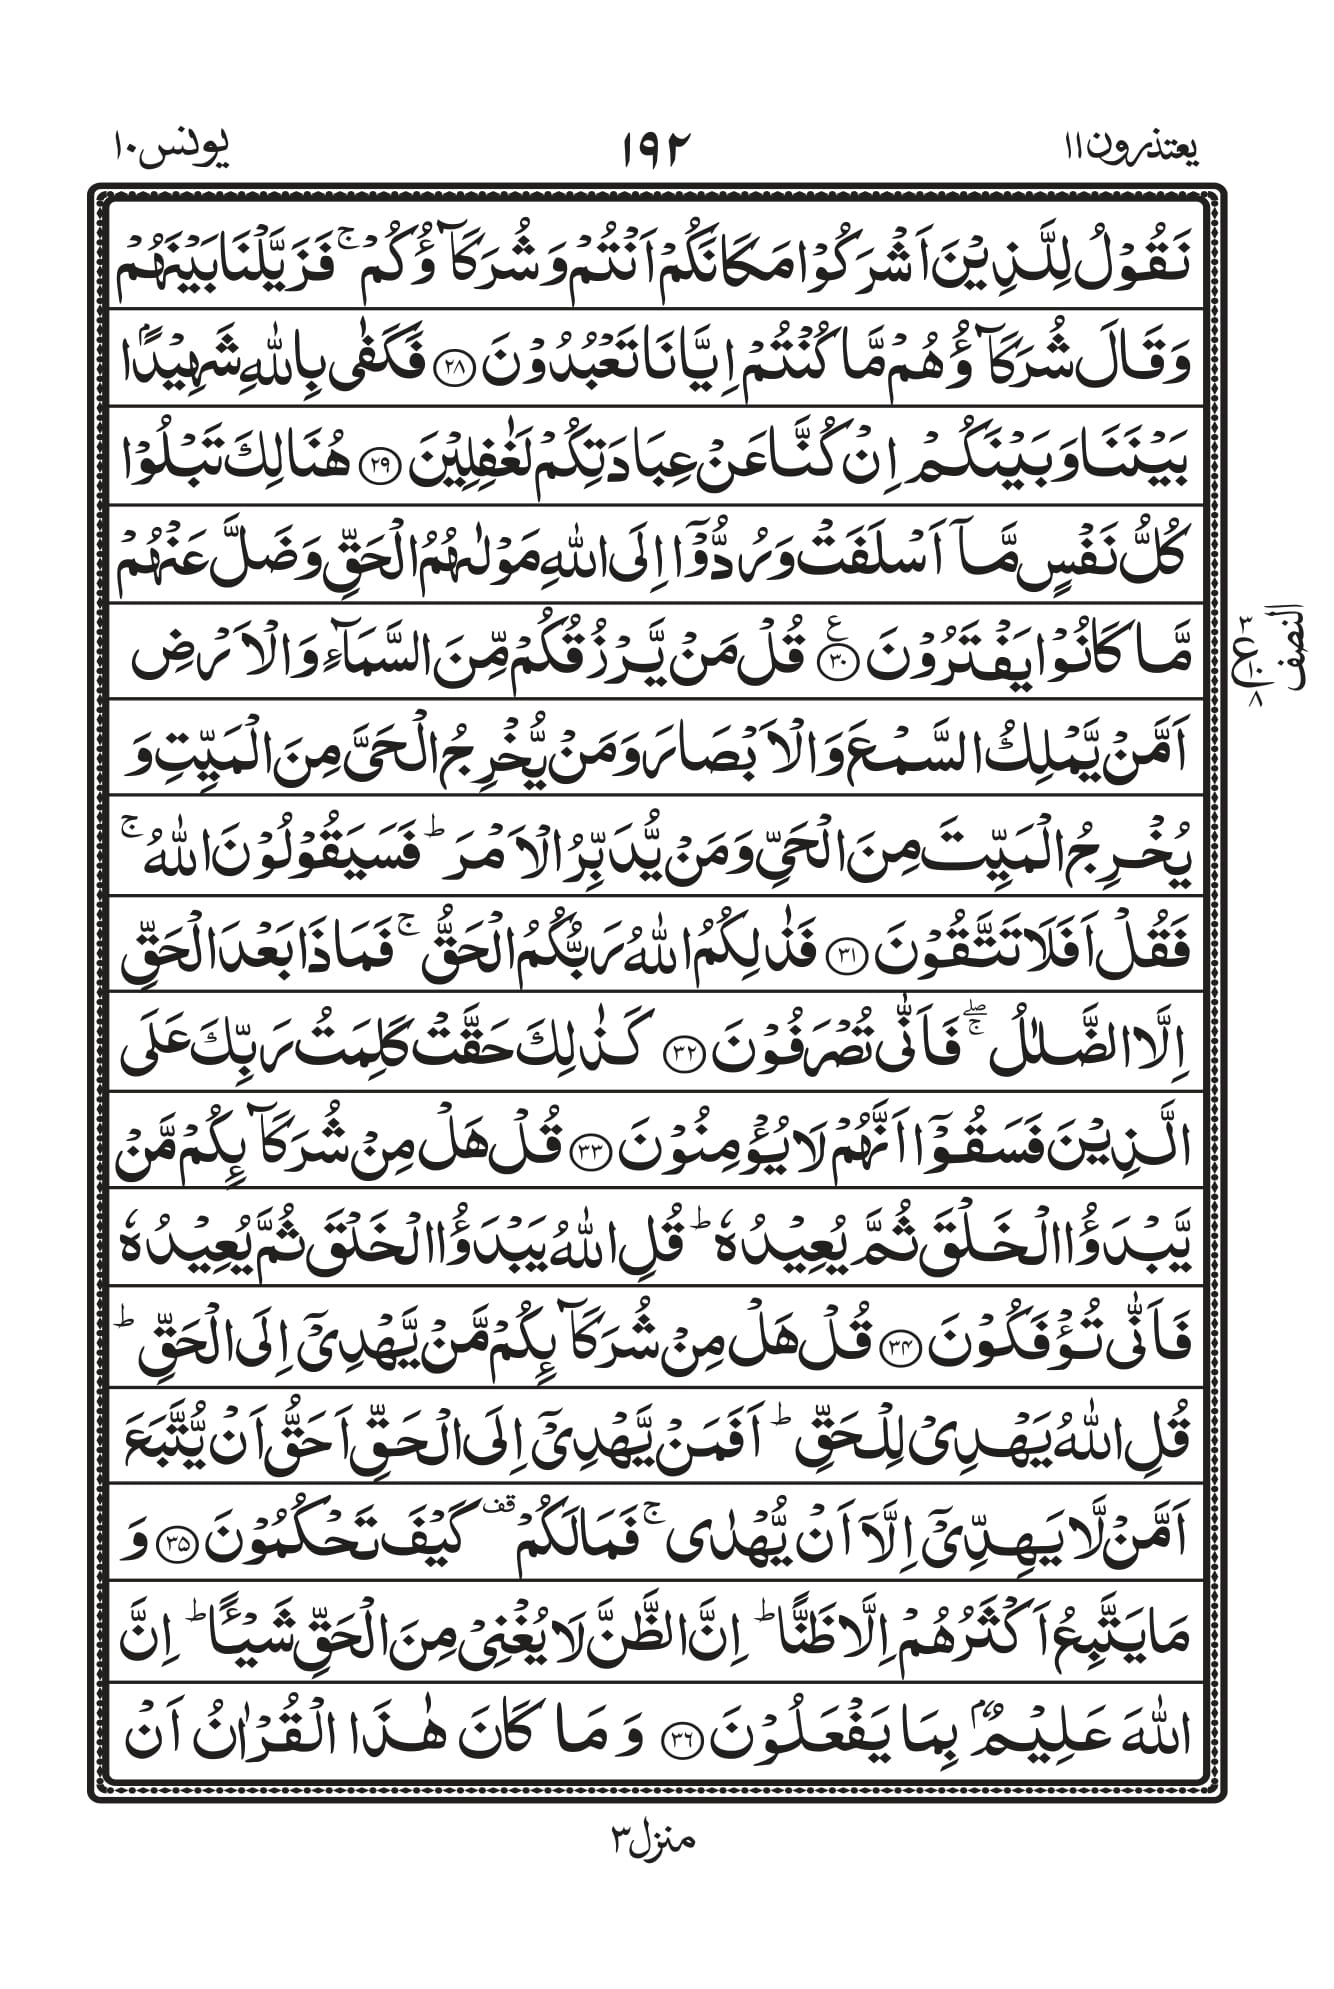 يعتذرون١١
١٩٢
يونس١٠
نَقُوْلُ لِلَّذِيْنَ اَشْرَكُوْا مَكَانَكُمْ اَنْتُمْ وَشُرَكَآؤُكُمْ ۚ فَزَيَّلْنَا بَيْنَهُمْ
وَقَالَ شُرَكَآؤُهُمْ مَّا كُنْتُمْ اِيَّانَا تَعْبُدُوْنَ ﴿۲۸﴾ فَكَفٰى بِاللّٰهِ شَهِيْدًۢا
بَيْنَنَا وَبَيْنَكُمْ اِنْ كُنَّا عَنْ عِبَادَتِكُمْ لَغٰفِلِيْنَ ﴿۲۹﴾ هُنَالِكَ تَبْلُوْا
كُلُّ نَفْسٍ مَّآ اَسْلَفَتْ وَرُدُّوْٓا اِلَى اللّٰهِ مَوْلٰىهُمُ الْحَقِّ وَضَلَّ عَنْهُمْ
مَّا كَانُوْا يَفْتَرُوْنَ ﴿۳۰﴾ ع قُلْ مَنْ يَّرْزُقُكُمْ مِّنَ السَّمَآءِ وَالْاَرْضِ
اَمَّنْ يَّمْلِكُ السَّمْعَ وَالْاَبْصَارَ وَمَنْ يُّخْرِجُ الْحَيَّ مِنَ الْمَيِّتِ وَ
يُخْرِجُ الْمَيِّتَ مِنَ الْحَيِّ وَمَنْ يُّدَبِّرُ الْاَمْرَ ؕ فَسَيَقُوْلُوْنَ اللّٰهُ ۚ
فَقُلْ اَفَلَا تَتَّقُوْنَ ﴿۳۱﴾ فَذٰلِكُمُ اللّٰهُ رَبُّكُمُ الْحَقُّ ۚ فَمَاذَا بَعْدَ الْحَقِّ
اِلَّا الضَّلٰلُ ۖۚ فَاَنّٰى تُصْرَفُوْنَ ﴿۳۲﴾ كَذٰلِكَ حَقَّتْ كَلِمَتُ رَبِّكَ عَلَى
الَّذِيْنَ فَسَقُوْٓا اَنَّهُمْ لَا يُؤْمِنُوْنَ ﴿۳۳﴾ قُلْ هَلْ مِنْ شُرَكَآئِكُمْ مَّنْ
يَّبْدَؤُا الْخَلْقَ ثُمَّ يُعِيْدُهٗ ؕ قُلِ اللّٰهُ يَبْدَؤُا الْخَلْقَ ثُمَّ يُعِيْدُهٗ
فَاَنّٰى تُؤْفَكُوْنَ ﴿۳۴﴾ قُلْ هَلْ مِنْ شُرَكَآئِكُمْ مَّنْ يَّهْدِيْٓ اِلَى الْحَقِّ ؕ
قُلِ اللّٰهُ يَهْدِيْ لِلْحَقِّ ؕ اَفَمَنْ يَّهْدِيْٓ اِلَى الْحَقِّ اَحَقُّ اَنْ يُّتَّبَعَ
اَمَّنْ لَّا يَهِدِّيْٓ اِلَّآ اَنْ يُّهْدٰى ۚ فَمَا لَكُمْ قف كَيْفَ تَحْكُمُوْنَ ﴿۳۵﴾ وَ
مَا يَتَّبِعُ اَكْثَرُهُمْ اِلَّا ظَنًّا ؕ اِنَّ الظَّنَّ لَا يُغْنِيْ مِنَ الْحَقِّ شَيْـًٔا ؕ اِنَّ
اللّٰهَ عَلِيْمٌۢ بِمَا يَفْعَلُوْنَ ﴿۳۶﴾ وَمَا كَانَ هٰذَا الْقُرْاٰنُ اَنْ
النصف
٣
ع
١٠
٨
منزل٣